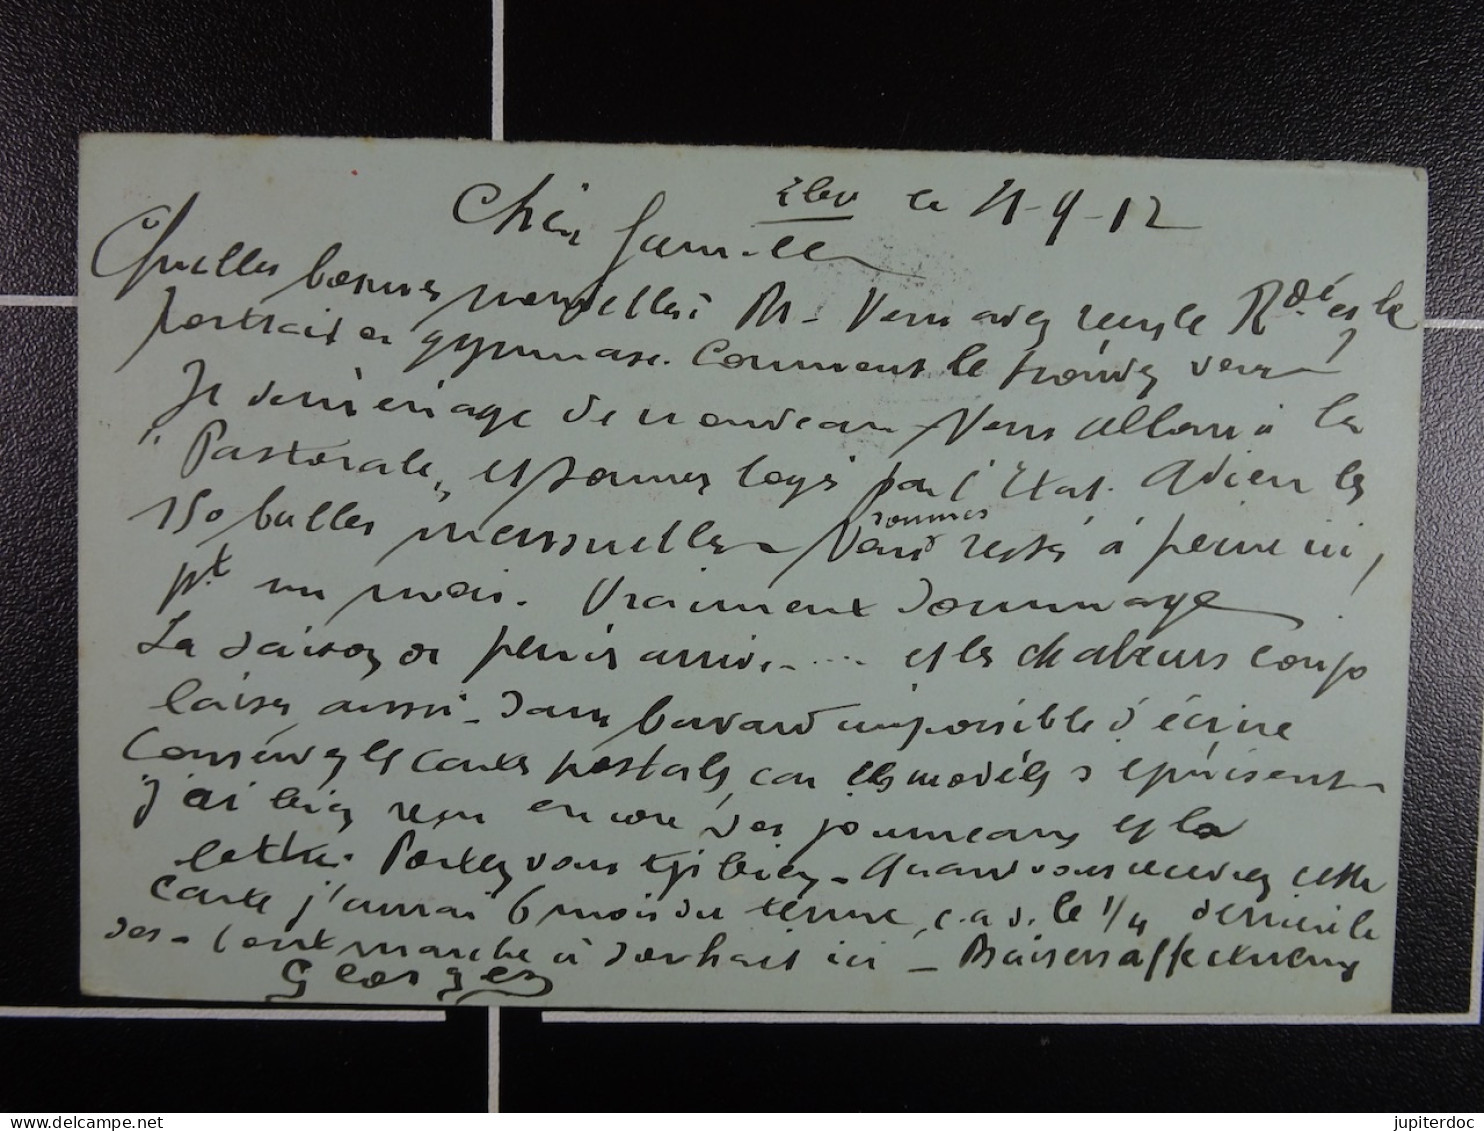 Eboo le 21-9-12
Chère famille
Quelles bonnes nouvelles? Vous avez reçu le et le
portrait en gymnase. Comment le trouvez vous?
Je déménage de nouveau. Nous allons à la
"Pastorale", et sommes logés par l'Etat. Adieu les
150 balles mensuelles. Nous sommes resté à peine ici,
pt un mois. Vraiment dommage!
La saison de pluies arrive..... et les chaleurs
aussi - dans impossible d'écrire
Conservez les cartes postales, car les modèles s'épuisent
j'ai bien reçu encore des journaux et la
lettre. Portez vous tjs bien - Quand vous recevrez cette
carte j'aurai 6 mois du terme, c.a.d. le 1/4
Tout marche à souhait ici - Baisers affectueux
Georges
delcampe.net
jupiterdoc